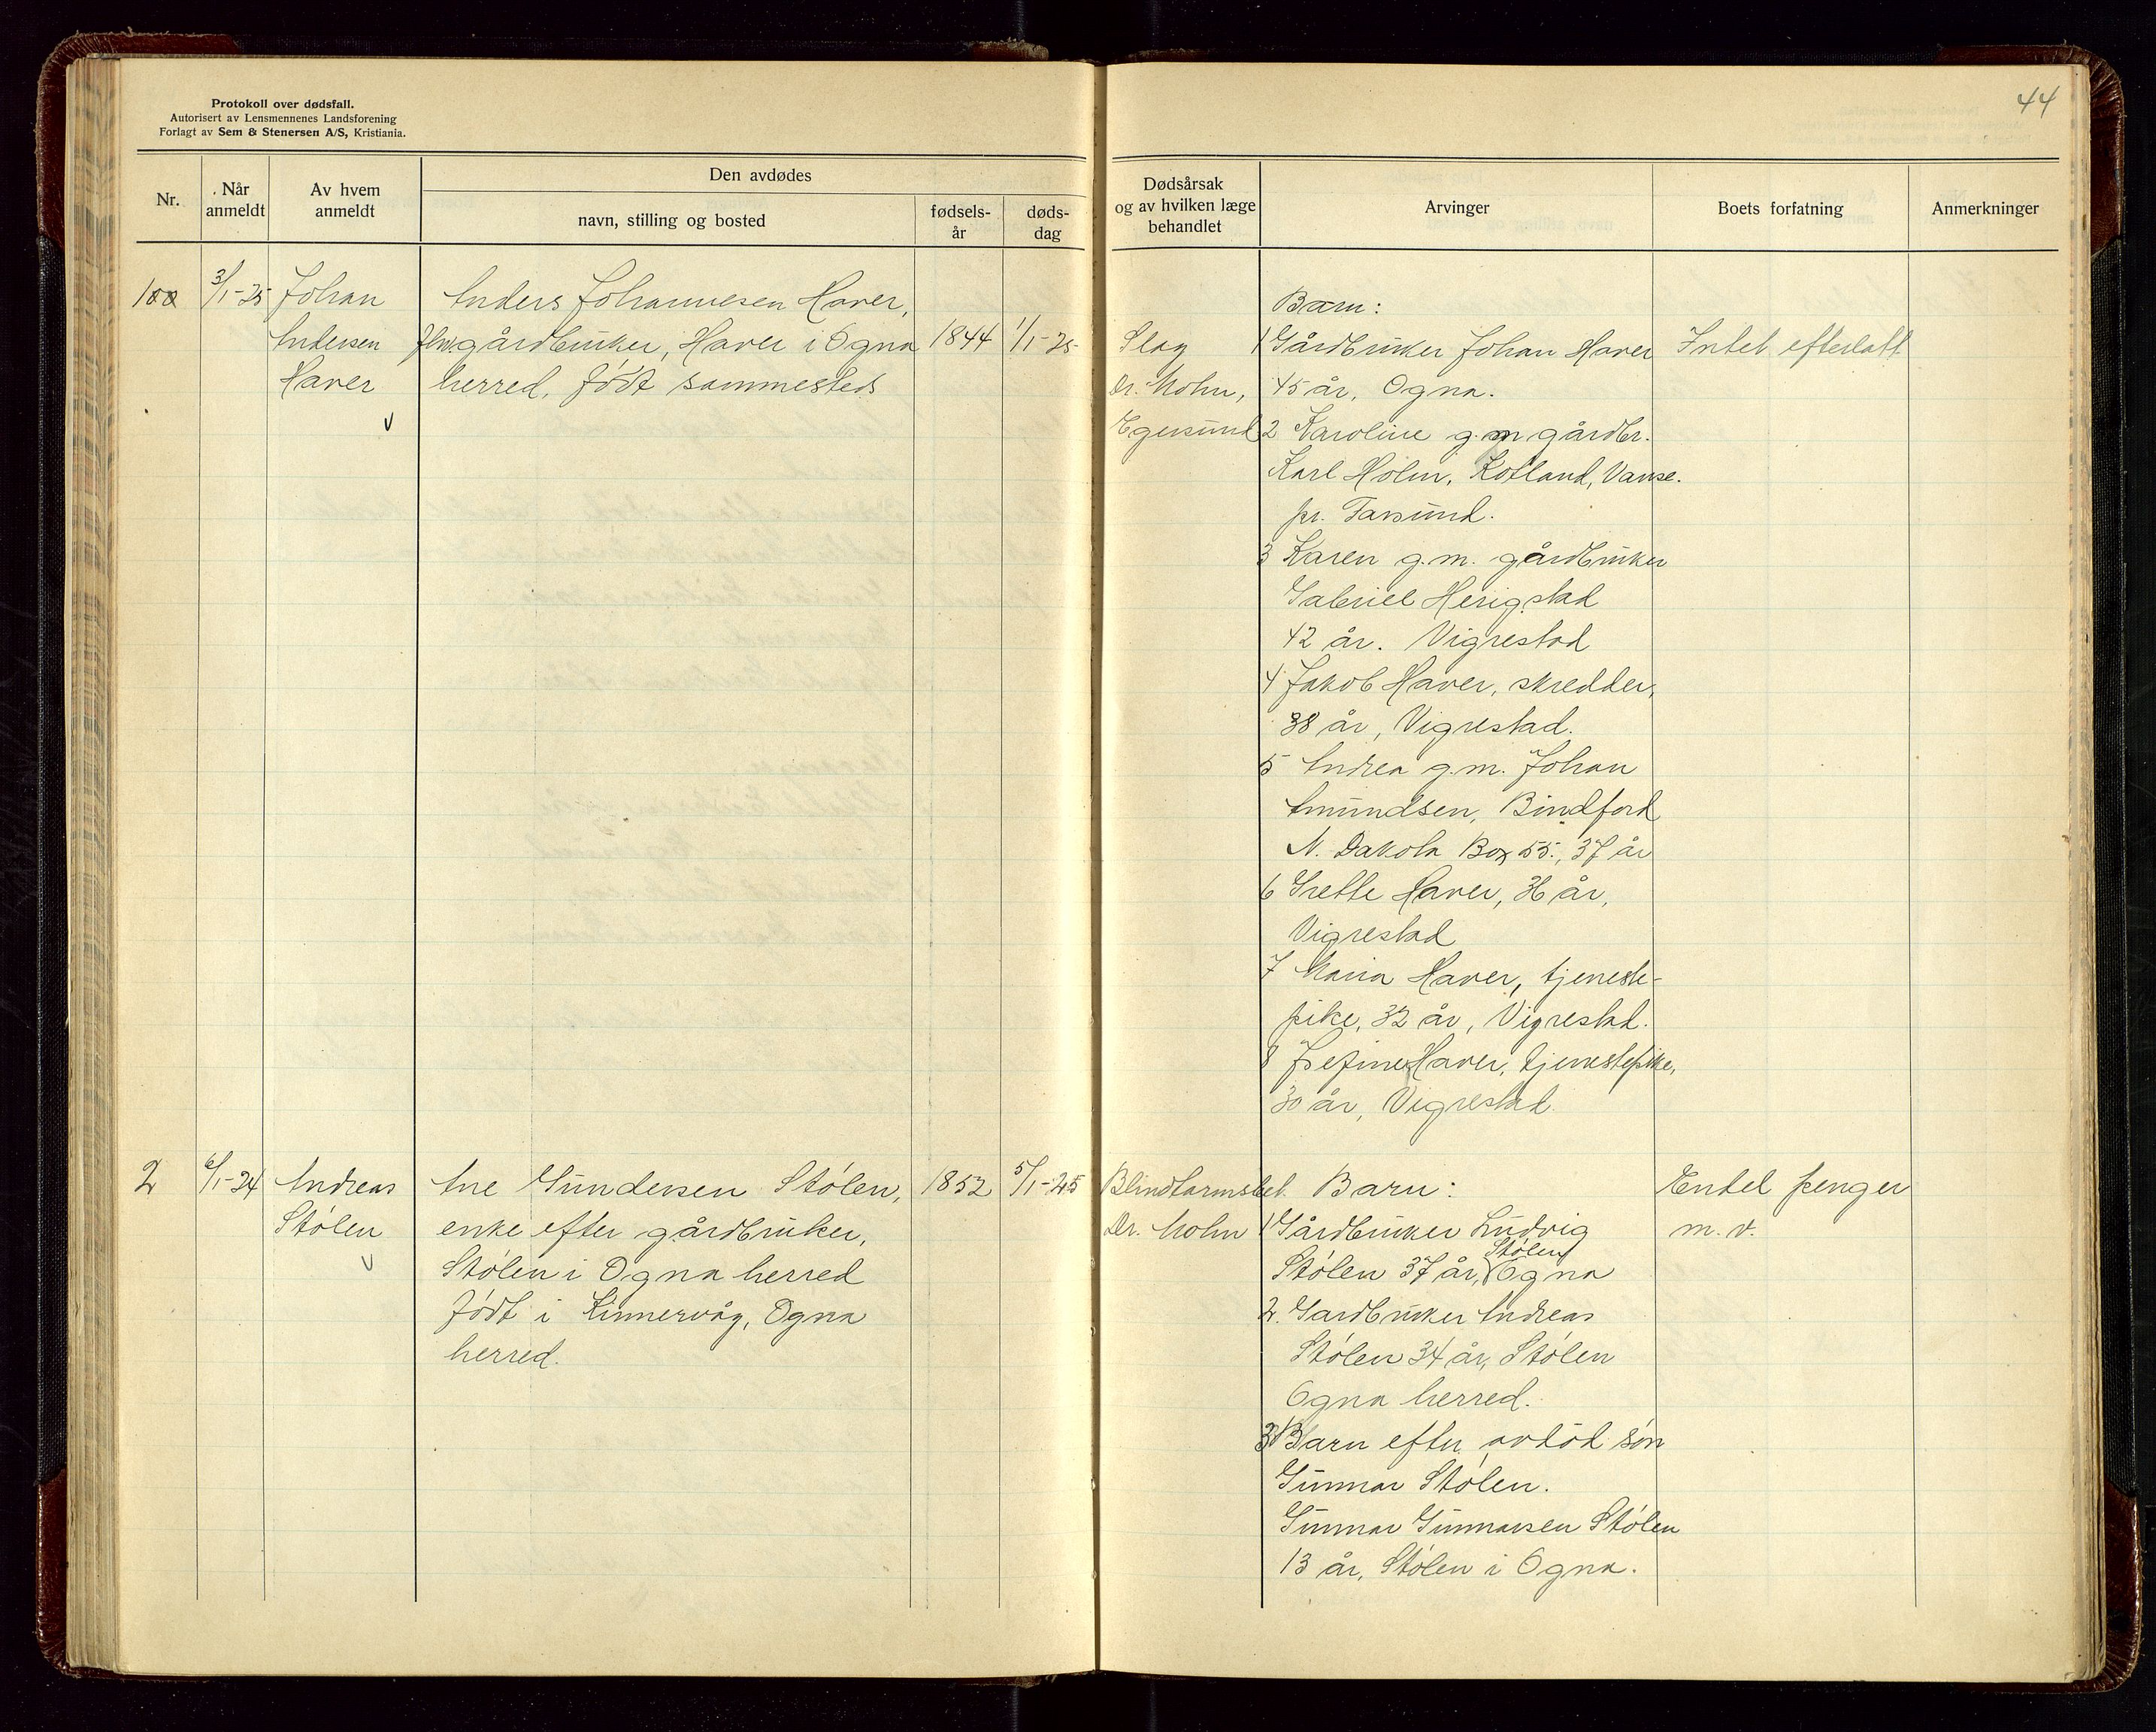 Protokoll over dødsfall.
Autorisert av Lensmennenes Landsforening
Forlagt av Sem & Stenersen A/S, Kristiania.
44
Nr.
Når anmeldt
Av hvem anmeldt
Den avdødes
navn, stilling og bosted
fødsels-år
døds-dag
Dødsårsak og av hvilken læge behandlet
Arvinger
Boets forfatning
Anmerkninger
3/1-25
Johan
Andersen
Haver
Anders Johannesen Haver,
gårdbruker, Haver i Ogna
herred. født sammesteds
1844
1/1-25
Slag
Dr. Mohn,
Egersund
Barn:
1 Gårdbruker Johan Haver
45 år, Ogna.
2 Karoline g.m gårdbr.
Karl Holm, Kotland, Vanse.
pr. Farsund.
3 Karen g.m. gårdbruker
Gabriel Herigstad
42 år. Vigrestad
4 Jakob Haver, skredder,
38 år, Vigrestad.
5 Andrea g.m. Johan
Amundsen, Bindford
N. Dakota Box 55., 37 år
6 Grette Haver, 36 år,
Vigrestad
7 Maria Haver, tjeneste-
pike, 32 år, Vigrestad.
8 Haver, tjenestepike,
30 år, Vigrestad.
Intet efterlatt
2
6/1-24
Andreas
Stølen
Ane Gundersen Stølen,
enke efter gårdbruker,
Stølen i Ogna herred
født i Ogna
herred.
1852
5/1-25
Blindtarmsbet.
Dr. Mohn
Barn:
1 Gårdbruker Ludvig
Stølen 37 år, Stølen Ogna
2. Gardbruker Andreas
Stølen 34 år, Stølen
Ogna herred.
3 Barn efter avdød søn
Gunnar Stølen.
Gunnar Gunnarsen Stølen
13 år, Stølen i Ogna.
Endel penger
m. v.